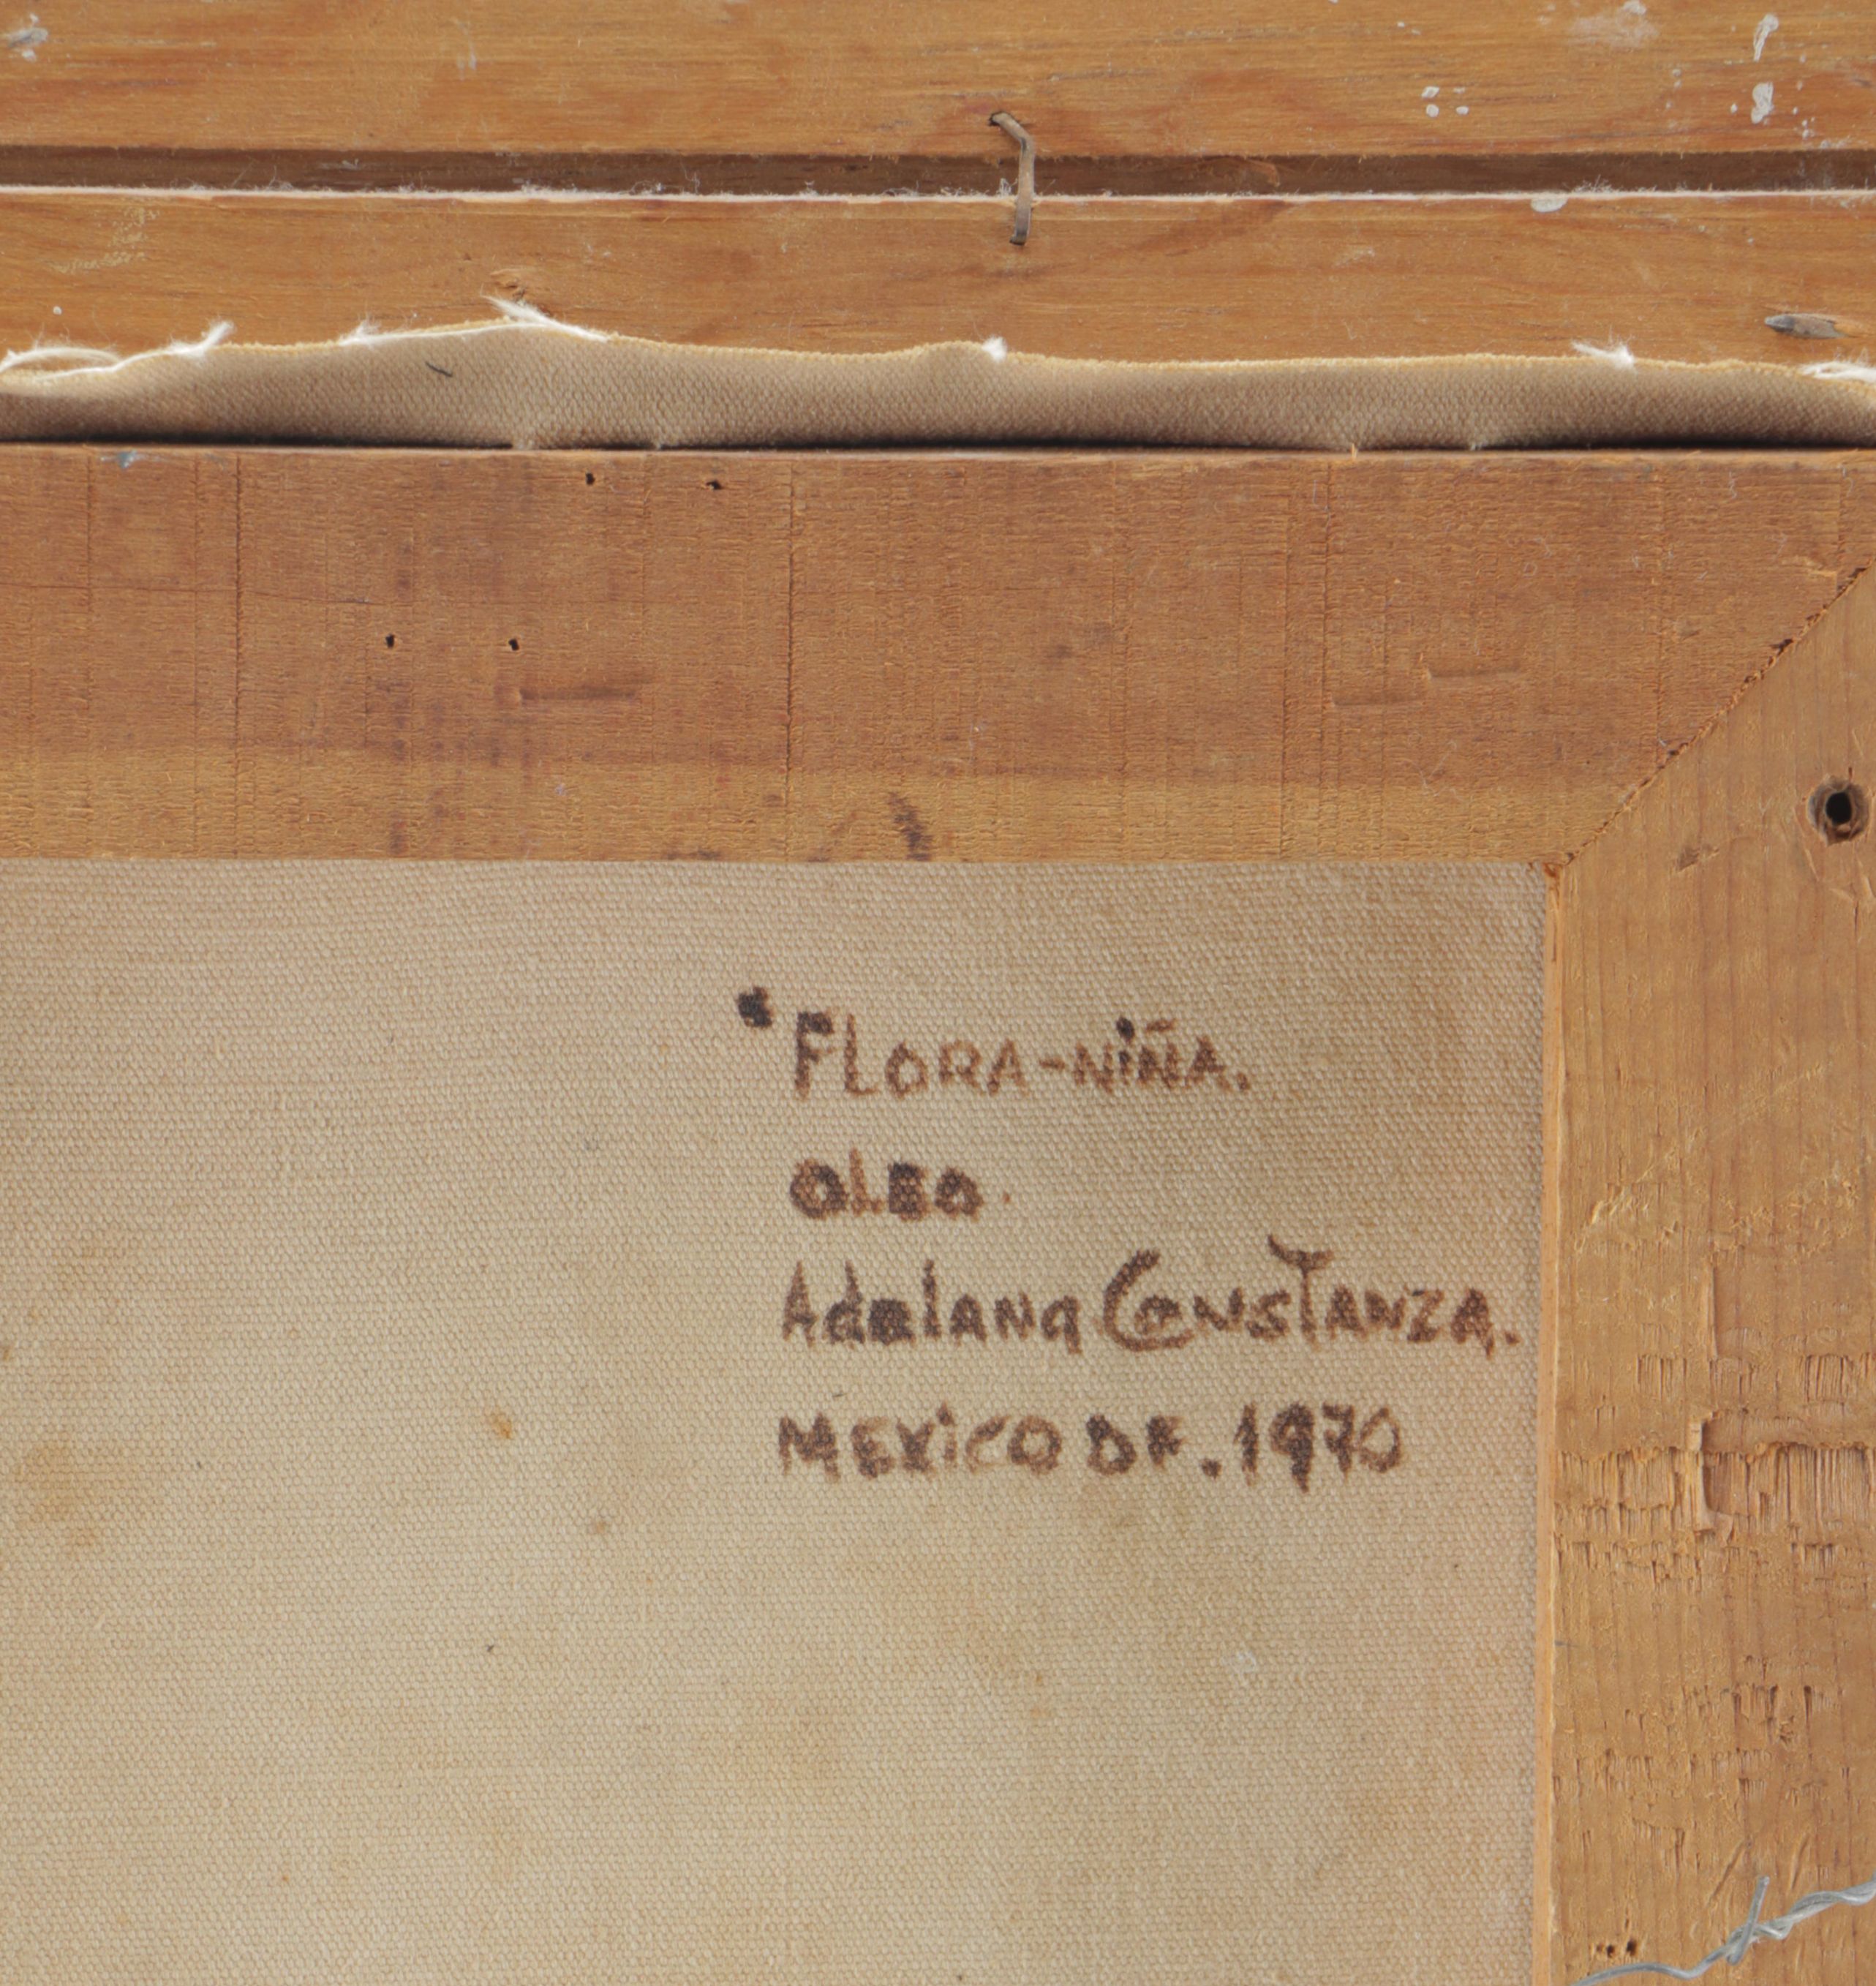 "FLORA-NiÑA.
OLEO.
Adriana CONSTANZA.
MEXiCO DF. 1970